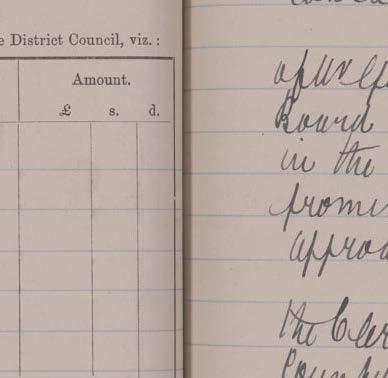 e District Council, viz.:
Amount.
£ s. d.
Board
in the
promi
approa
the Cler